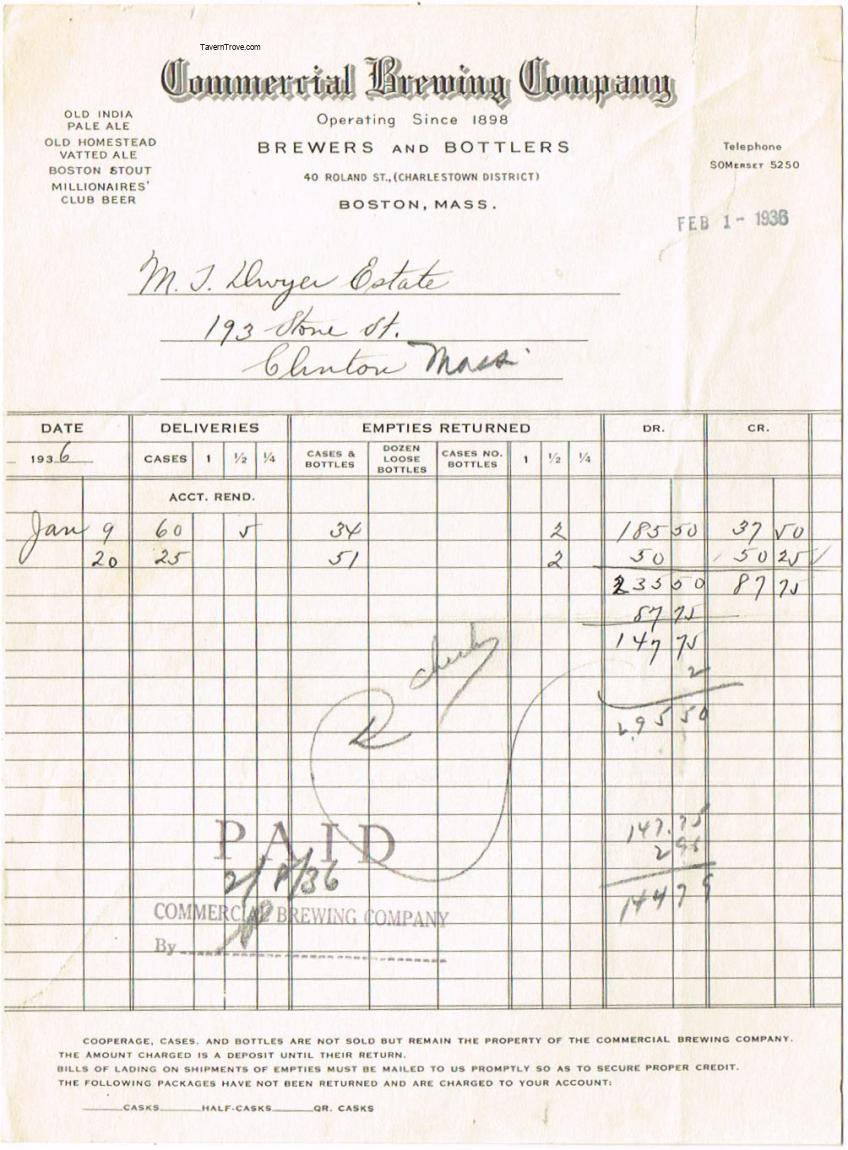 TavernTrove.com
Commercial Brewing Company
Operating Since 1898
BREWERS AND BOTTLERS
40 ROLAND ST., (CHARLESTOWN DISTRICT)
BOSTON, MASS.
OLD INDIA
PALE ALE
OLD HOMESTEAD
VATTED ALE
BOSTON STOUT
MILLIONAIRES'
CLUB BEER
Telephone
SOMERSET 5250
FEB 1- 1936
M. J. Dwyer Estate
193 Stone St.
Clinton Mass.
DATE DELIVERIES EMPTIES RETURNED DR. CR.
1936 CASES 1 ½ ¼ CASES & BOTTLES DOZEN LOOSE BOTTLES CASES NO. BOTTLES 1 ½ ¼
ACCT. REND.
Jan 9 60 5 34 2 185 50 37 50
20 25 51 2 50 50 25
235 50 87 75
87 75
147 75
2
29550
check
147.75
295
PAID
2/8/36
COMMERCIAL BREWING COMPANY
By
COOPERAGE, CASES, AND BOTTLES ARE NOT SOLD BUT REMAIN THE PROPERTY OF THE COMMERCIAL BREWING COMPANY.
THE AMOUNT CHARGED IS A DEPOSIT UNTIL THEIR RETURN.
BILLS OF LADING ON SHIPMENTS OF EMPTIES MUST BE MAILED TO US PROMPTLY SO AS TO SECURE PROPER CREDIT.
THE FOLLOWING PACKAGES HAVE NOT BEEN RETURNED AND ARE CHARGED TO YOUR ACCOUNT:
CASKS HALF-CASKS QR. CASKS